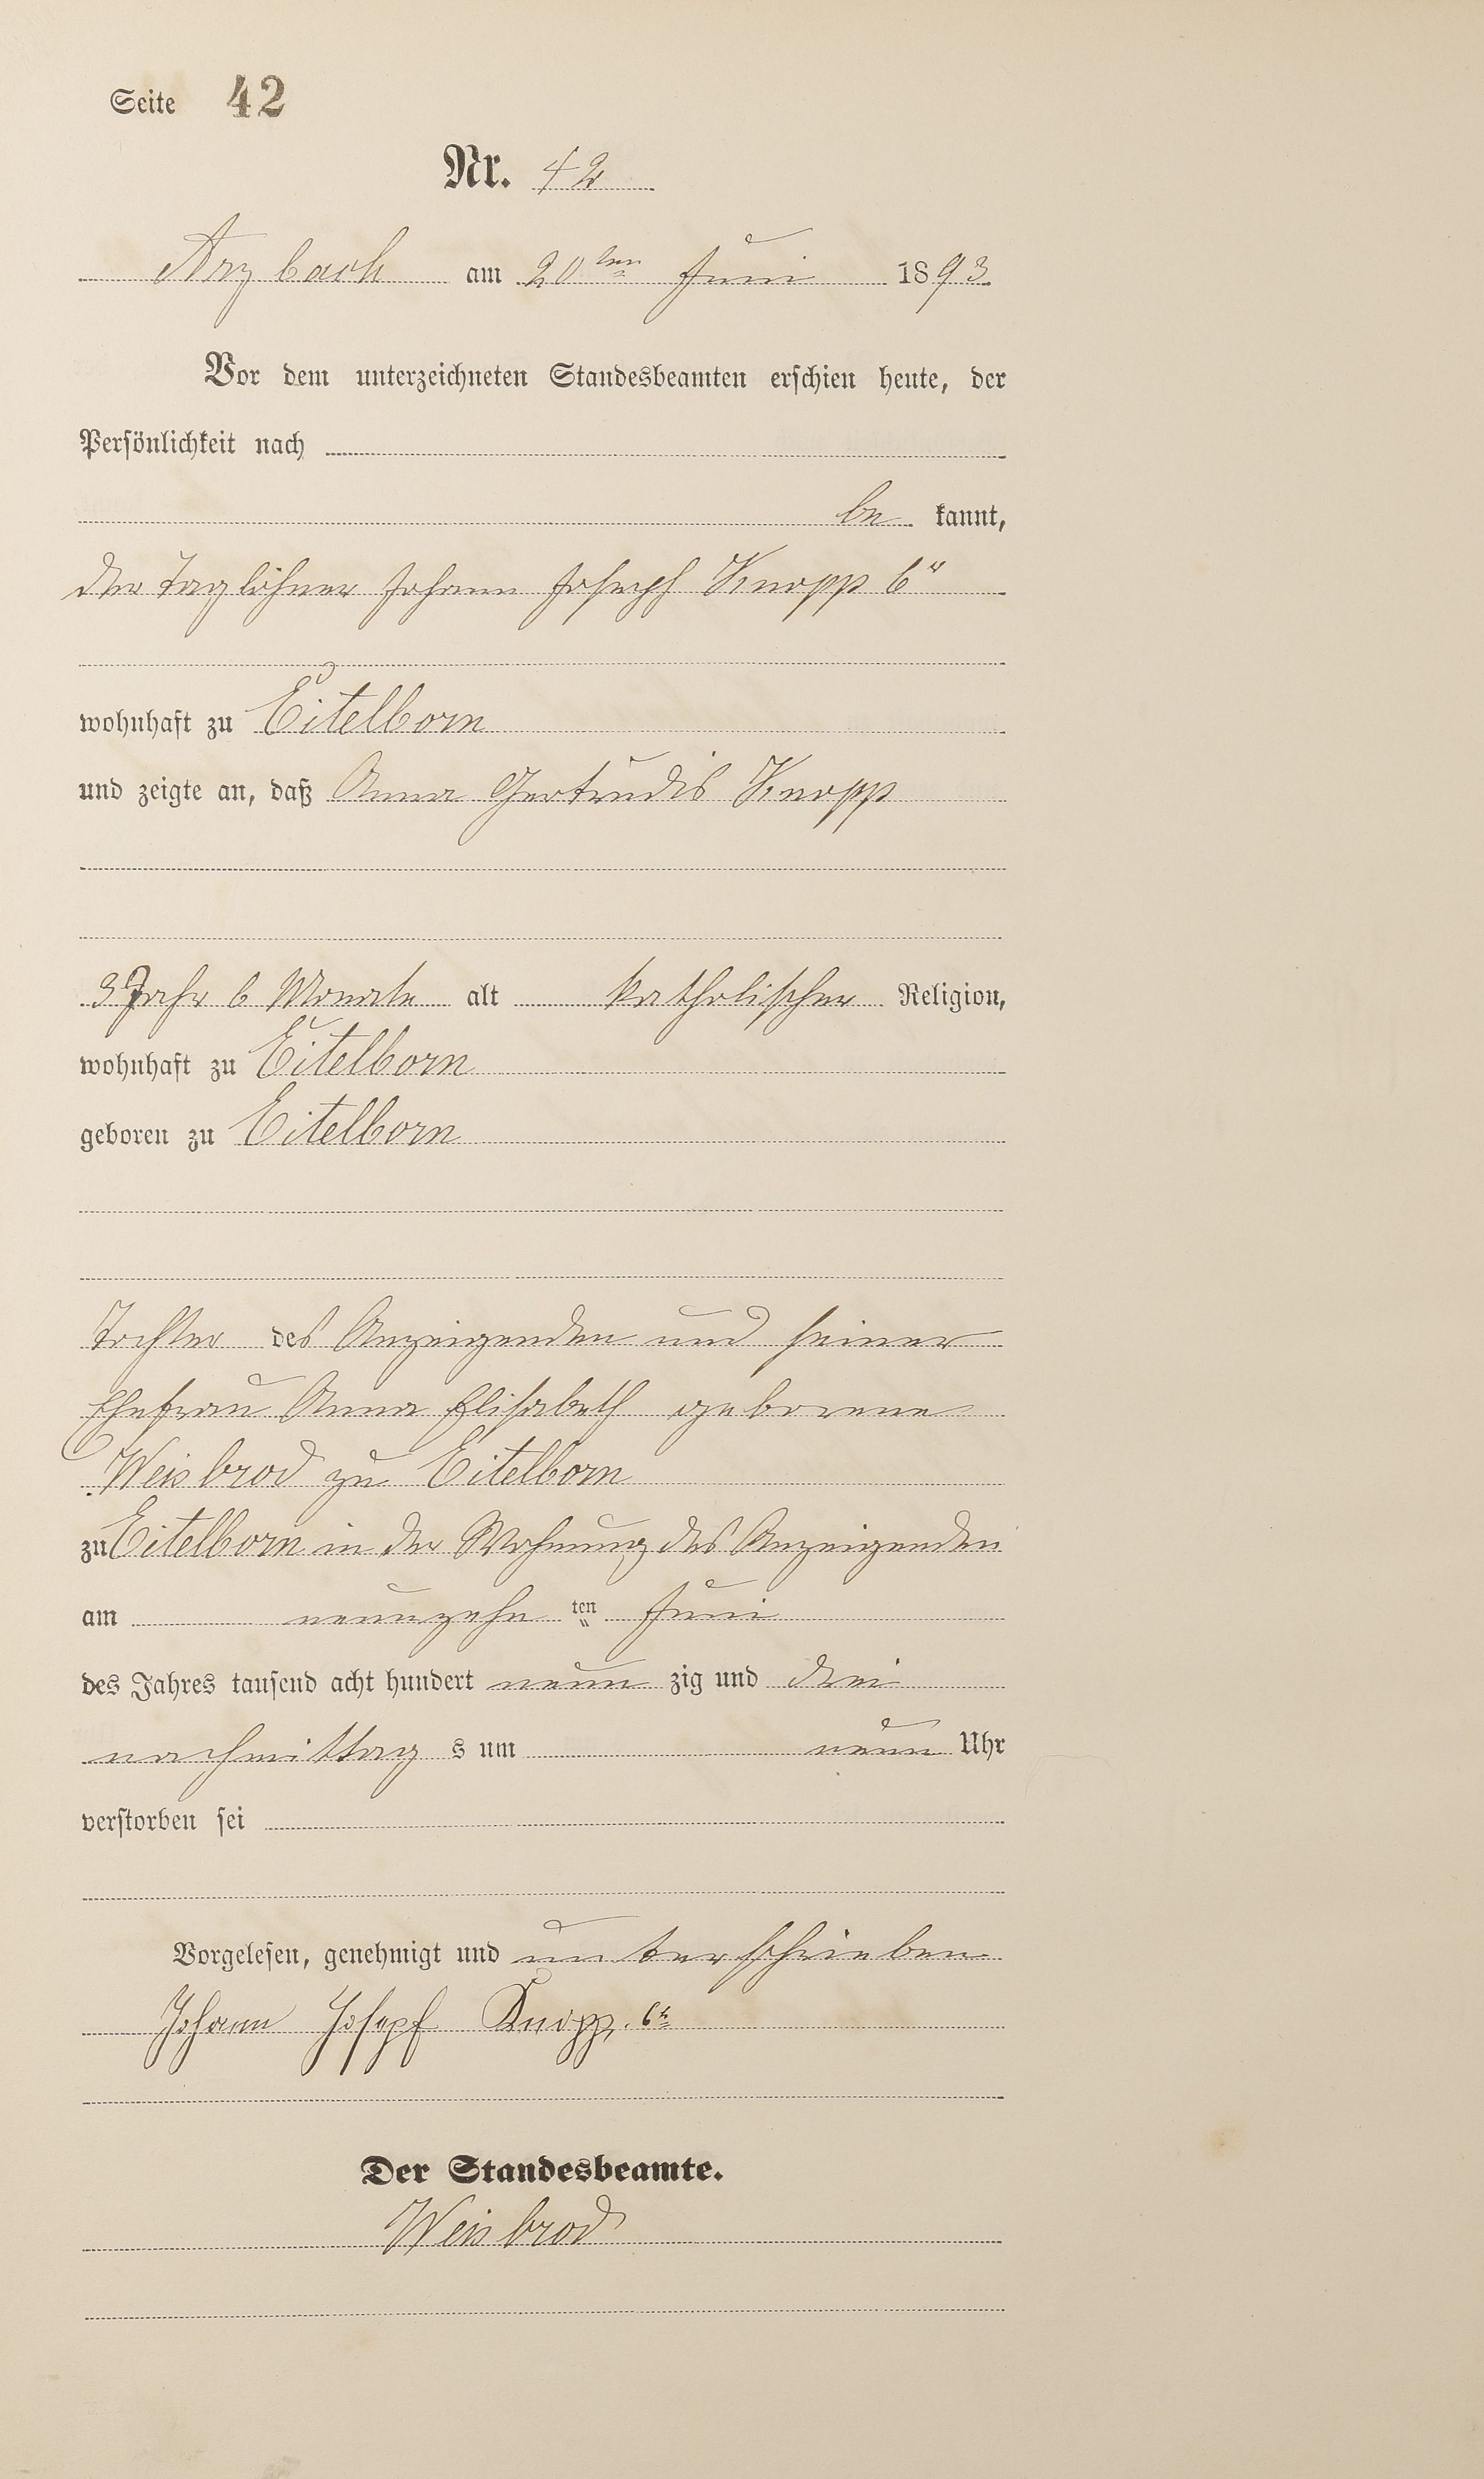 Seite 42
Nr. 42
Arzbach am 20ten Juni 1893
Vor dem unterzeichneten Standesbeamten erschien heute, der
Persönlichkeit nach
be kannt,
der Taglöhner Johann Joseph Knopp 6r
wohnhaft zu Eitelborn
und zeigte an, daß Anna Gertrudis Knopp
3 Jahr 6 Monate alt katholischer Religion,
wohnhaft zu Eitelborn
geboren zu Eitelborn
Tochter des Anzeigenden und seiner
Ehefrau Anna Elisabeth geborene
Weisbrod zu Eitelborn
zu Eitelborn in der Wohnung des Anzeigenden
am neunzehn ten Juni
des Jahres tausend acht hundert neun zig und drei
nachmittag s um neun Uhr
verstorben sei
Vorgelesen, genehmigt und unterschrieben
Johann Josepf Knopp. 6t
Der Standesbeamte.
Weisbrod